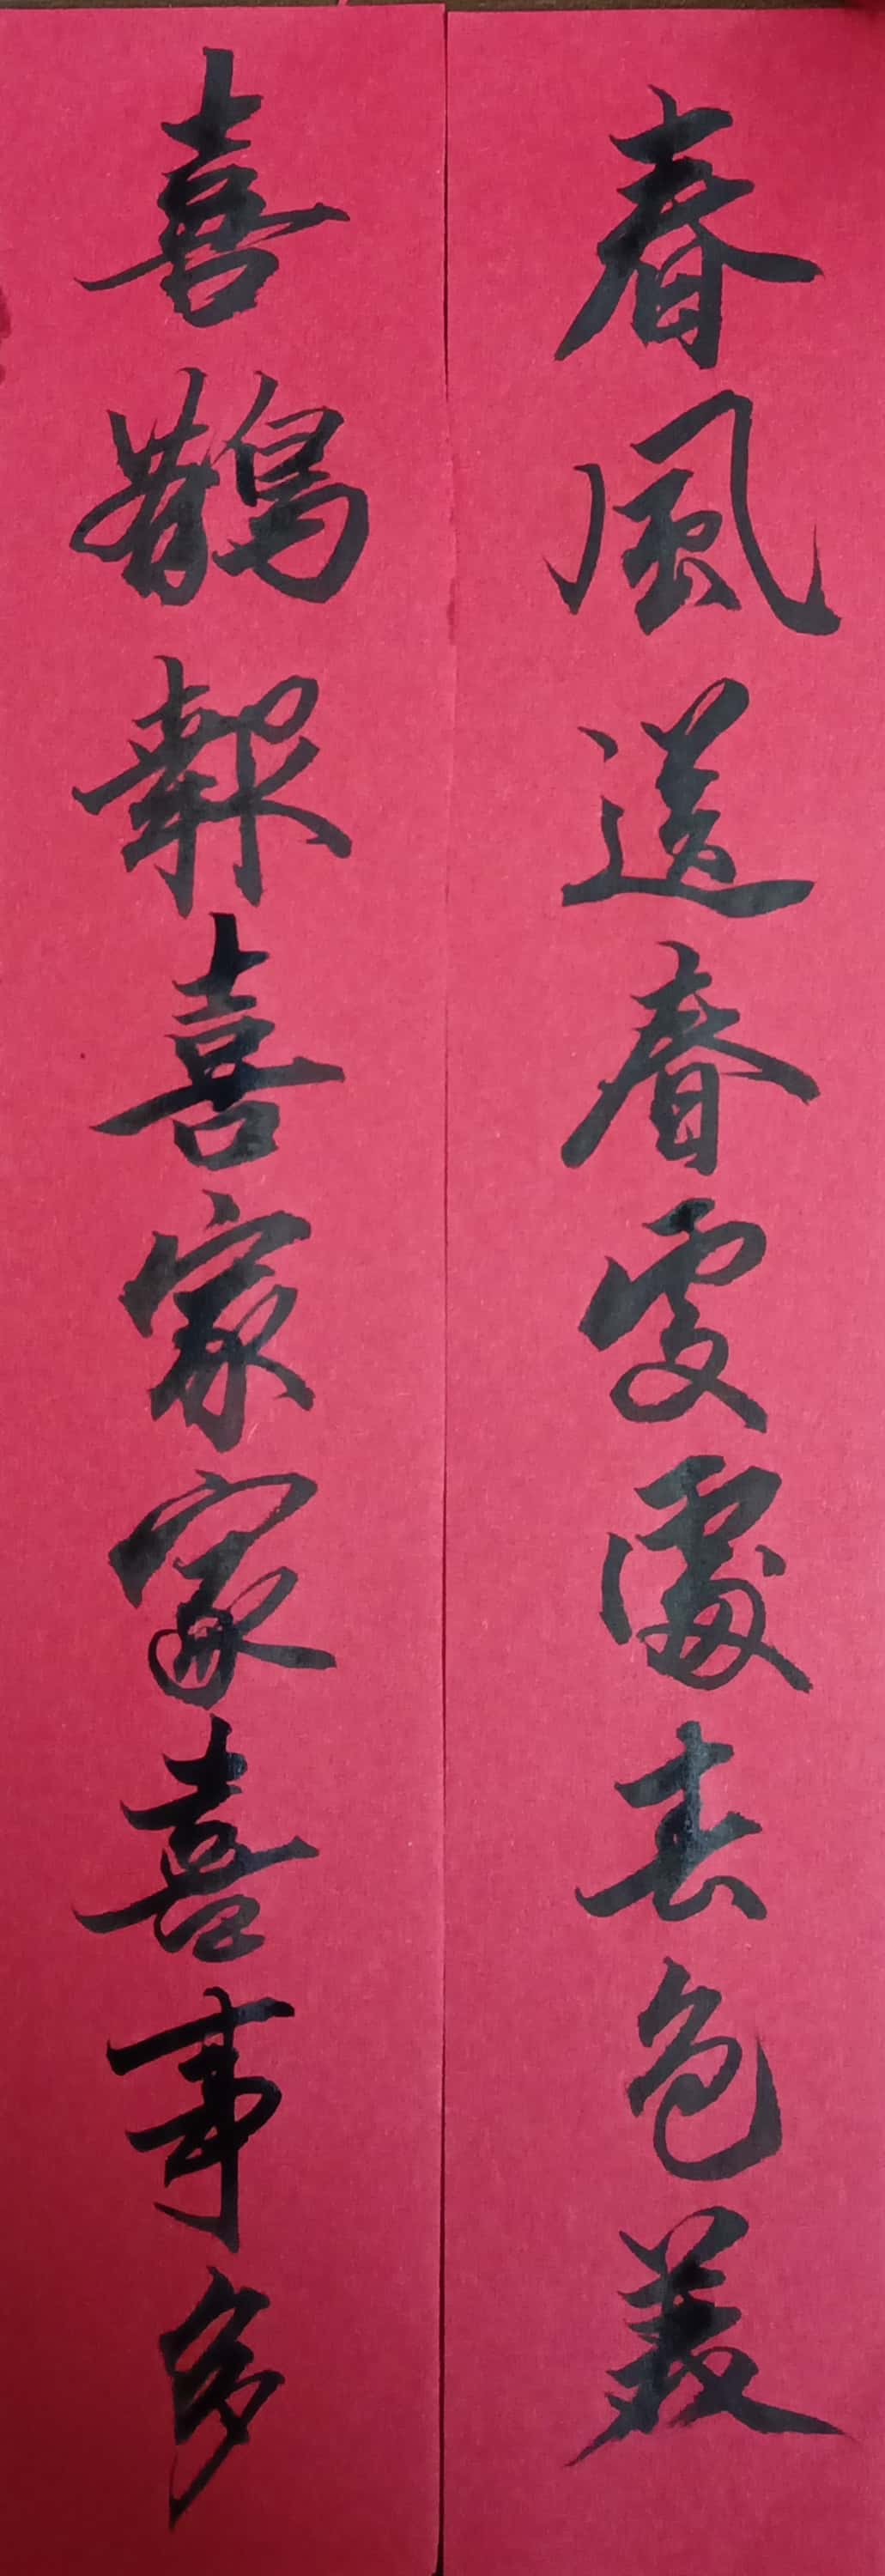 春風送春處處春色美
喜鵲報喜家家喜事多